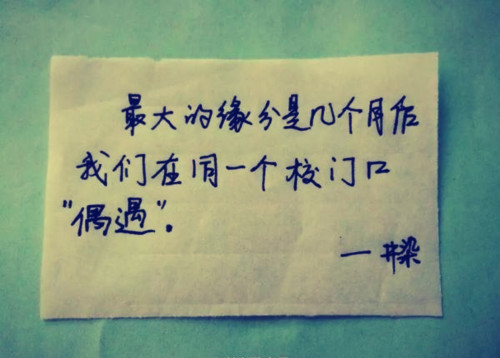 最大的缘分是几个月后
我们在同一个校门口
"偶遇".
—井染